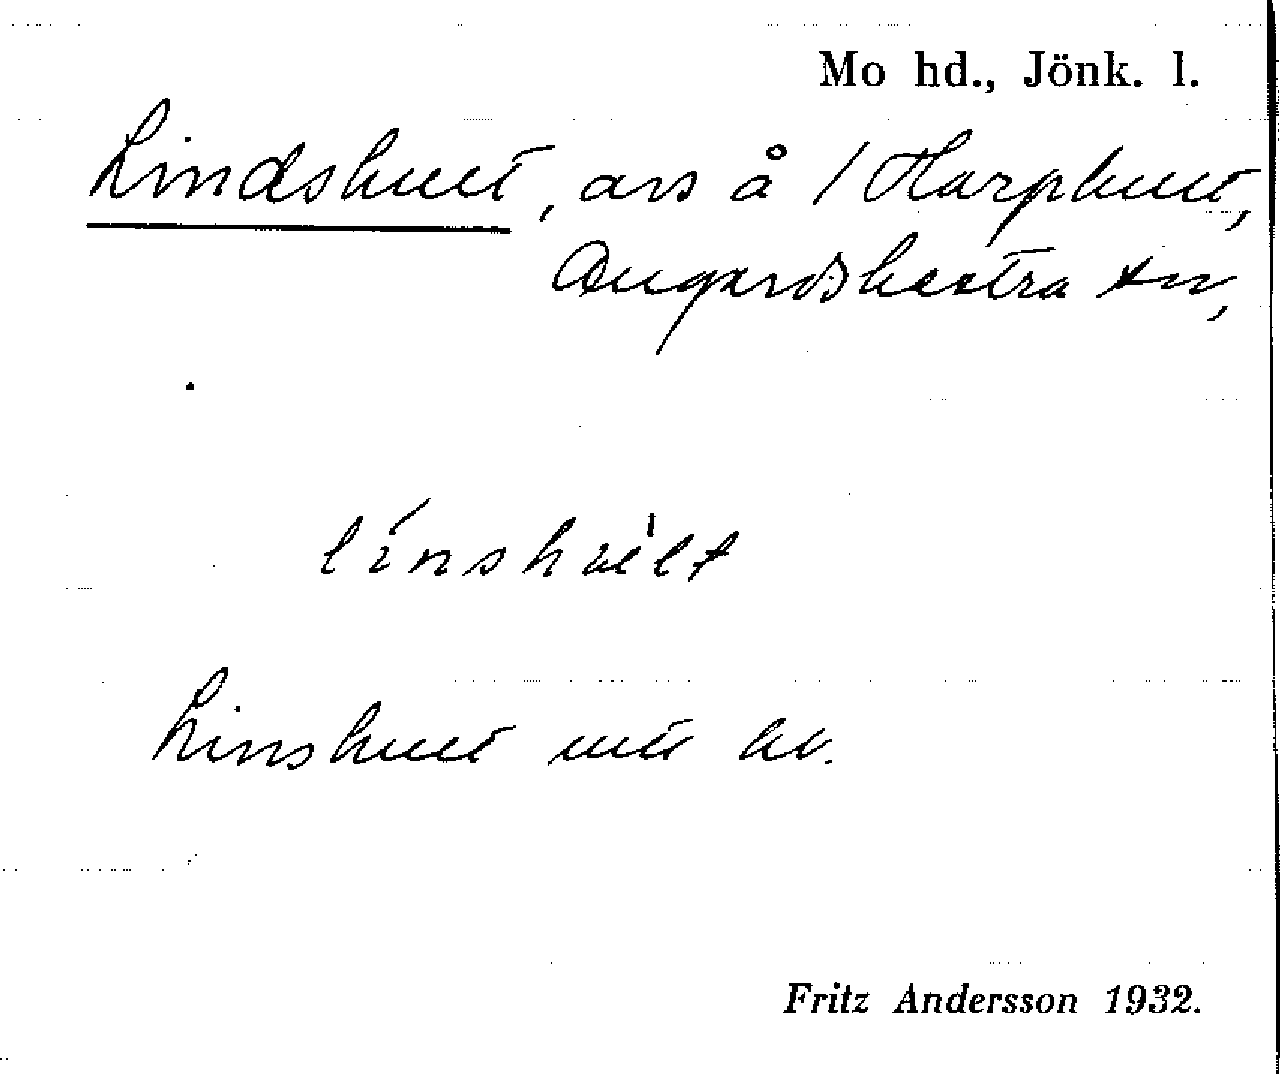 Mo hd., Jönk. l.
Lindshult, avs å /Harphult,
Ångerdshestra sn,
línshùlt
Linshult
Fritz Andersson 1932.